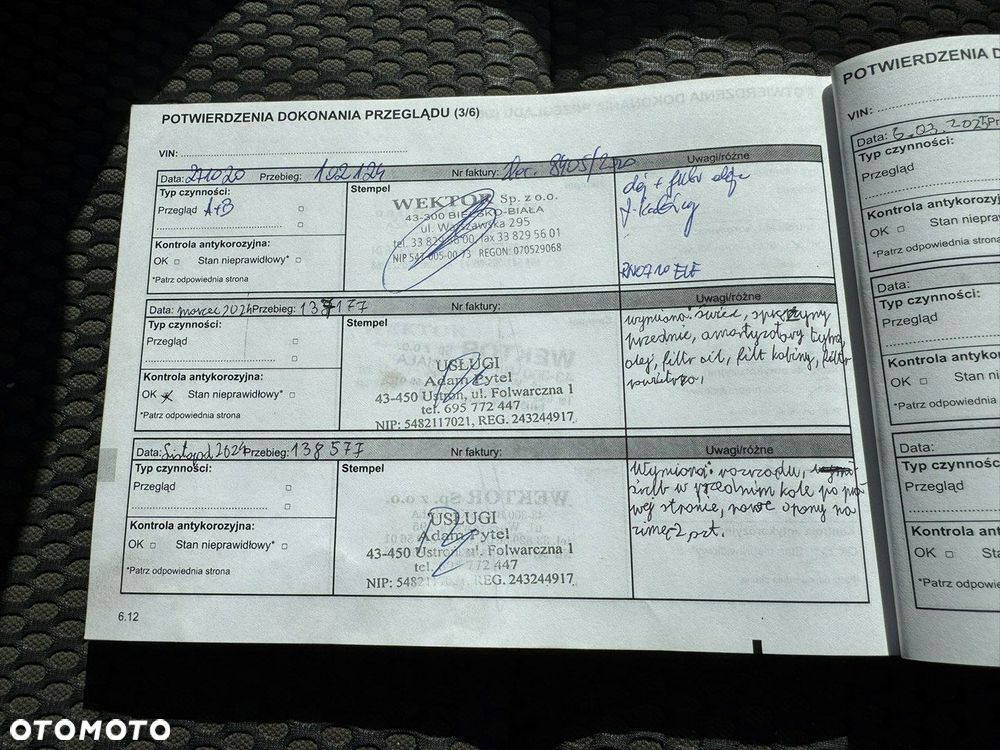 POTWIERDZENIA DOKONANIA PRZEGLĄDU (3/6)
VIN:
Data: 271020 Przebieg: 102124 Nr faktury: 8405/2020 Uwagi/różne
Typ czynności:
Przegląd A+B
Kontrola antykorozyjna:
OK Stan nieprawidłowy*
*Patrz odpowiednia strona
Stempel
WEKTOR Sp. z o.o.
43-300 BIELSKO-BIAŁA
ul. Warszawska 295
tel. 33 829 56 00 fax 33 829 56 01
NIP 547-005-00-13 REGON: 070529068
olej + filtr oleju
f. kabiny
RN0710 ELF
Data: marzec 2024 Przebieg: 137177 Nr faktury: Uwagi/różne
Typ czynności:
Przegląd
Kontrola antykorozyjna:
OK x Stan nieprawidłowy*
*Patrz odpowiednia strona
Stempel
USŁUGI
Adam Pytel
43-450 Ustroń, ul. Folwarczna 1
tel. 695 772 447
NIP: 5482117021, REG. 243244917
wymiana: świec, sprężyny
przednie, amortyzatory tylne,
olej, filtr oil, filt kabiny, filtr
powietrza.
Data: listopad 2024 Przebieg: 138577 Nr faktury: Uwagi/różne
Typ czynności:
Przegląd
Kontrola antykorozyjna:
OK Stan nieprawidłowy*
*Patrz odpowiednia strona
Stempel
USŁUGI
Adam Pytel
43-450 Ustroń, ul. Folwarczna 1
tel. 695 772 447
NIP: 5482117021, REG. 243244917
Wymiana: rozrządu,
śrub w przednim kole po pra
wej stronie, nowe opony na
zimę 2 szt.
6.12
POTWIERDZENIA D
VIN:
Data: 6.03.2025 Pr
Typ czynności:
Przegląd
Kontrola antykorozyj
OK Stan niepraw
*Patrz odpowiednia strona
Data:
Typ czynności:
Przegląd
Kontrola antyko
OK Stan n
*Patrz odpowiednia
Data:
Typ czynnoś
Przegląd
Kontrola ant
OK S
*Patrz odpowie
OTOMOTO